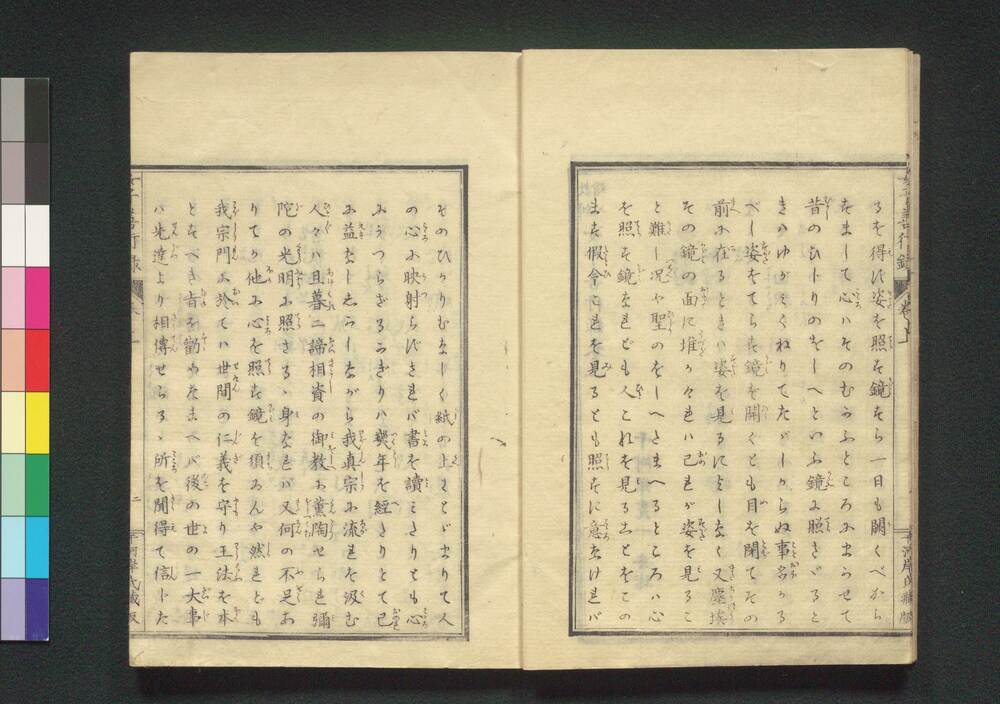 るを得ず姿を照す鏡すら一日も闕くべから
をまして心ハそのむかふところにまかせて
昔のひじりのをしへといふ鏡に照さゞると
きハゆがミくねりてたゞしからぬ事多かる
べし姿をてらす鏡を開くとも目を閉てその
前に在るときハ姿を見るによしなく又塵埃
その鏡の面に堆かゝれハ己れが姿を見るこ
と難し况や聖のをしへたまへるところハ心
を照す鏡なれども人これを見ることをこの
まず假令これを見るとも照すに意なけれバ
そのひかりむなしく紙の上にとゞまりて人
の心に映射らずされバ書を讀ミたりとも心
にうつらざるかぎりハ幾年を經たりとて己
に益なししかしながら我真宗に流れを汲む
人々ハ旦暮二諦相資の御教に薫陶せられ彌
陀の光明に照さるゝ身なれバ又何の不足あ
りてか他に心を照す鏡を須ゐんや然れども
我宗門に於てハ世間の仁義を守り王法を本
とすべき旨を勸めたまへバ後の世の一大事
ハ先達より相傳せらるゝ所を聞得て信じた